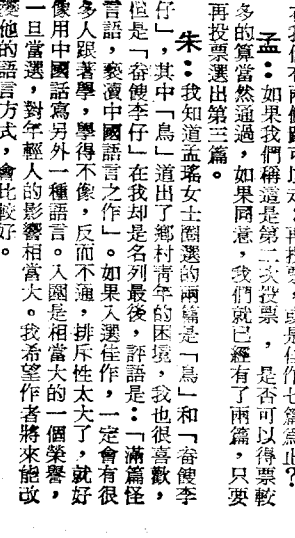 可以走：再投票，或是佳作七篇
孟：如果我們稱這是第二次投票，是否可以得票較
多的算當然通過，如果同意，我們就已經有了兩篇，只要
再投票選出第三篇。
朱：我知道孟瑤女士圈選的兩篇是「鳥」和「畲餿李
仔」，其中「鳥」道出了鄉村青年的困境，我也很喜歡，
但是「畲餿李仔」在我却是名列最後，評語是：「滿篇怪
言語，褻瀆中國語言之作」。如果入選佳作，一定會有很
多人跟著學，學得不像，反而不通，排斥性太大了，就好
像用中國話寫另外一種語言。入圍是相當大的一個榮譽，
一旦當選，對年輕人的影響相當大。我希望作者將來能改
變他的語言方式，會比較好。